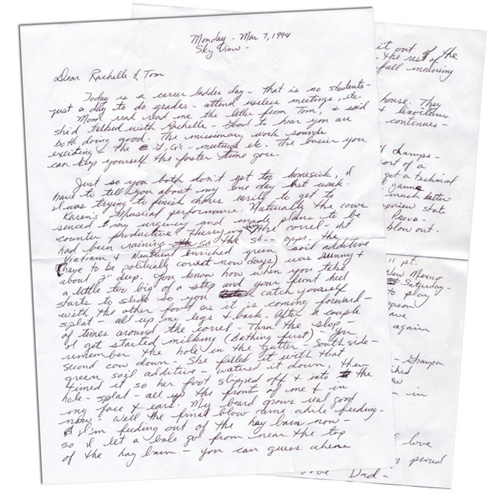 Monday - Mar 7, 1994
Sky View -
Dear Rachelle & Tom
Today is a career ladder day - that is no students -
just a day to do grades - attend useless meetings, etc.
Mom read me the letter from Tom & said
she'd talked with Rachelle - Good to hear you are
both doing good. The missionary work sounds
exciting & the - meeting etc. The busier you
can keep yourself the faster time goes.
Just so you both don't get too homesick, I
have to tell you about my one day last week.
I was trying to finish chores early to get to
Karen's musical performance. Naturally the cows
senced my urgency and made plans to be
counter productive. Hurrying thru the corral, it
had been raining so the sh-- oops, the
(Watrum & Nutrient enriched green soil additive
(have to be politically correct now days) was runny &
about 2" deep. You know how when you take
a little too big of a step and your front heel
starts to slide so you catch yourself
with the other foot as it is coming forward -
splat - all up my legs & back. After a couple
of times around the corral - Thru the slop
I get started milking (Bathing first). You
remember the hole in the gutter - South side -
Second cow down - She filled it with that
green soil additive - watered it down - then
timed it so her foot slipped off & into the
hole - splat - all up the front of me & in
my face & ears. My beard grows real good
now. Well the final blow came while feeding -
I'm feeding out of the hay barn now -
so I let a bale go from near the top
of the hay barn - you can guess where
it out of the
the rest of
fall morning
house. They
continues -
champs -
ort of a
get a technical
game
much better
view state
Provo -
blow out.
11 pt.
New Mexico
Saturday -
to play
ave
again
in
love
Love Dad -